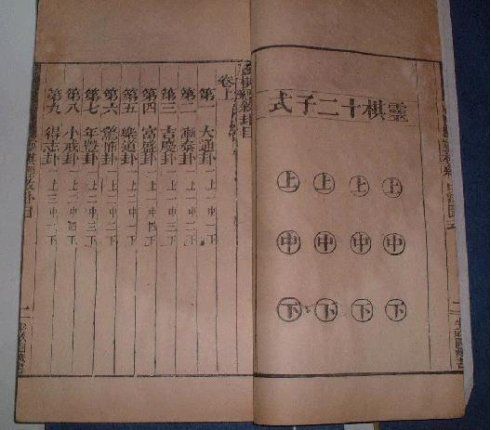 靈棋十二子式
上上上上
中中中中
下下下下
卦目
卷上
第一 大通卦 一上一中一下
第二 漸泰卦 一上一中二下
第三 吉慶卦 一上一中三下
第四 富盛卦 一上一中四下
第五 樂道卦 一上二中一下
第六 驚怖卦 一上二中二下
第七 年豐卦 一上二中三下
第八 小戒卦 一上二中四下
第九 得志卦 一上三中一下